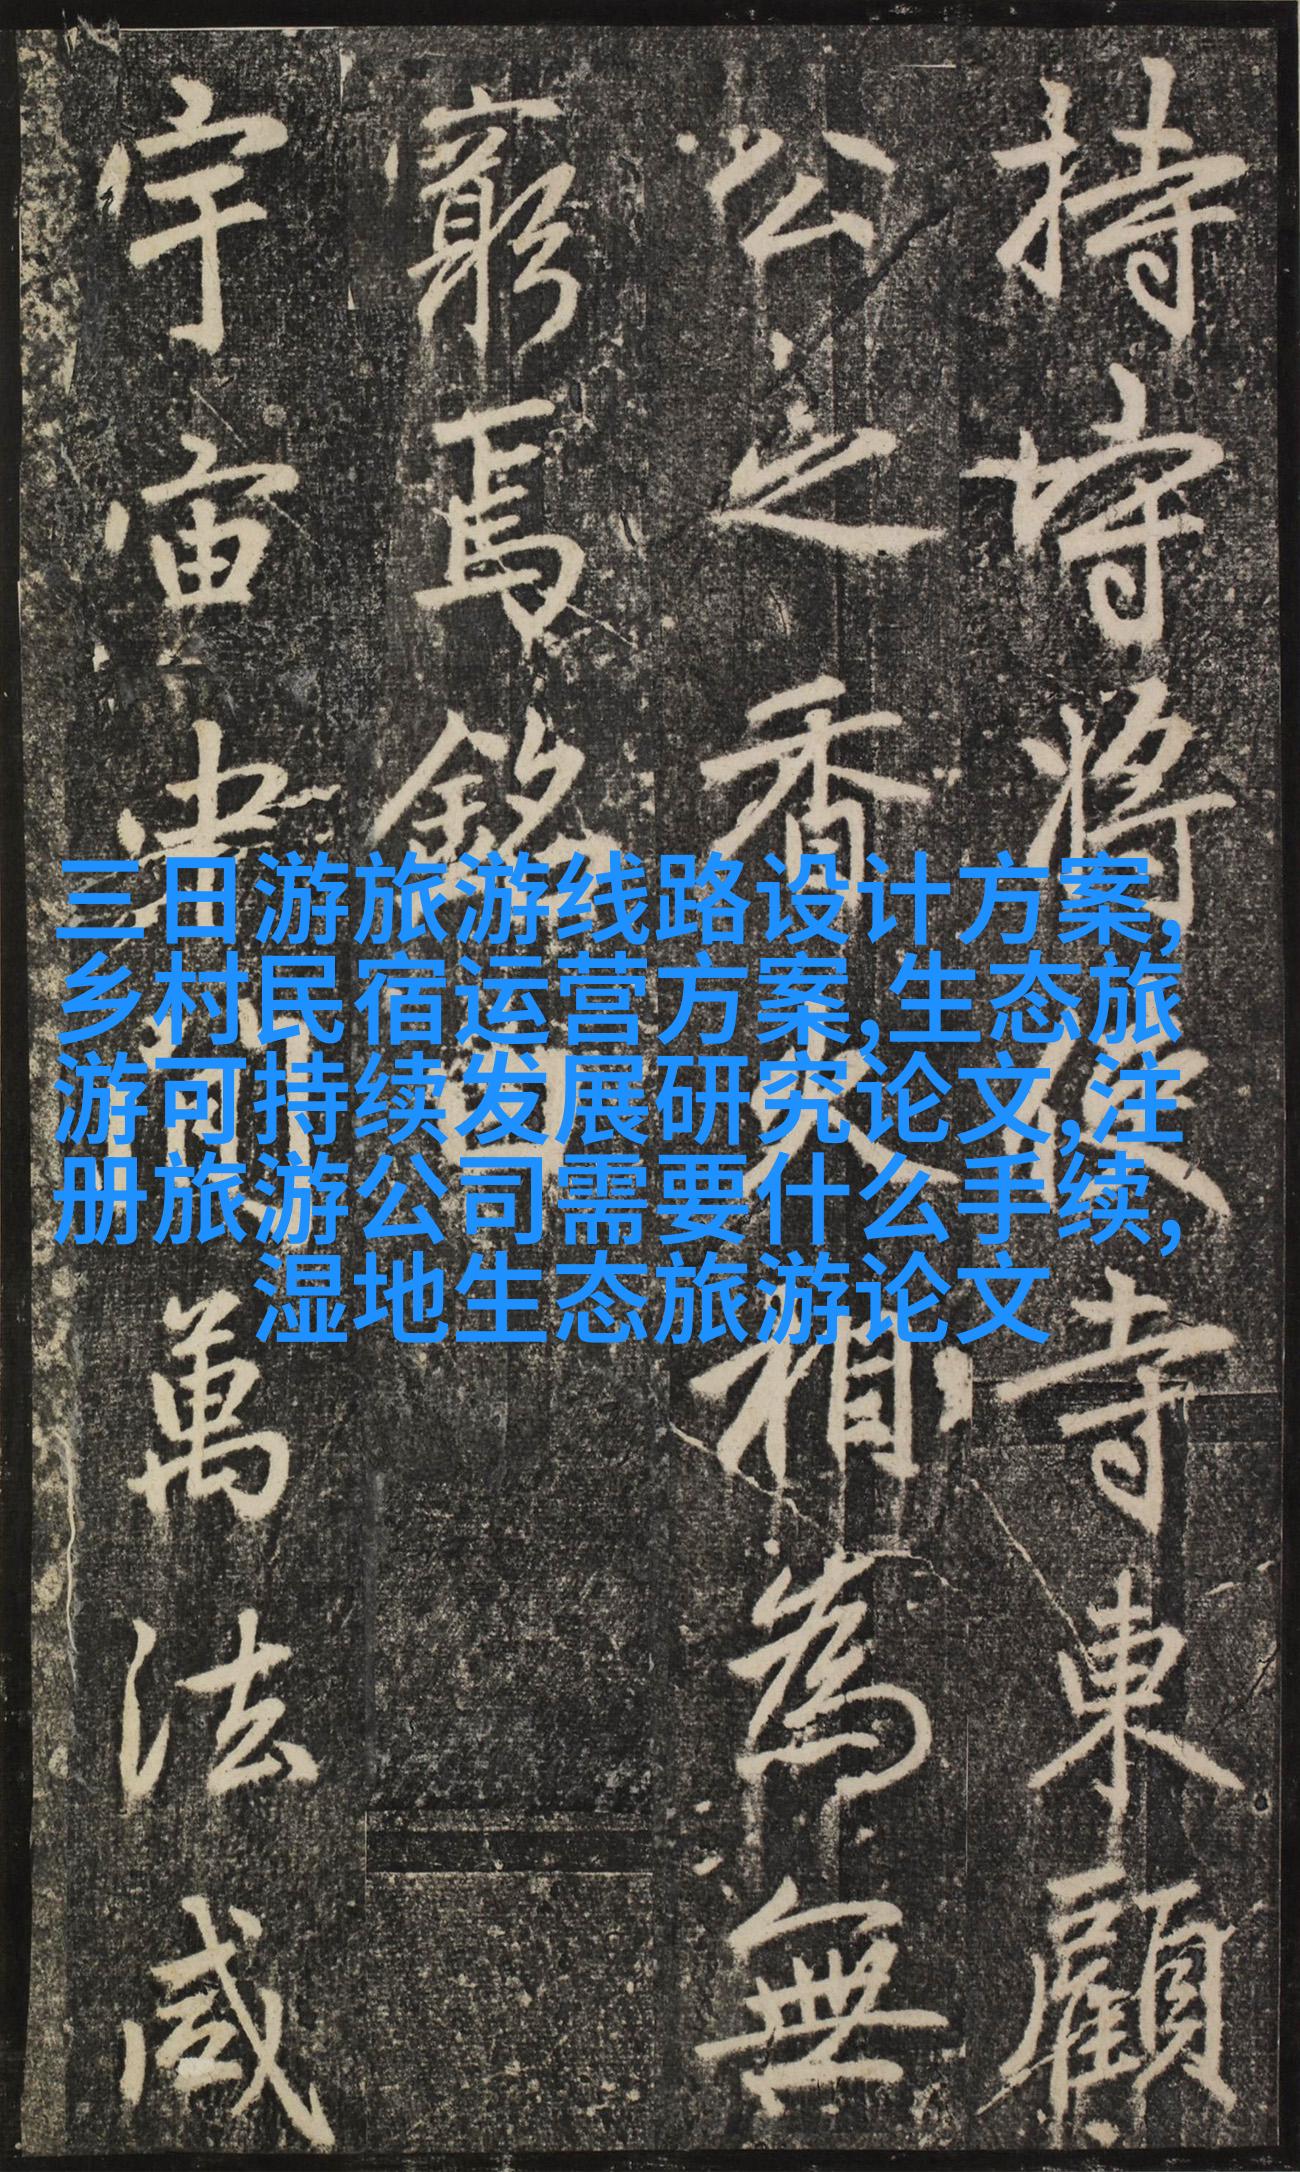 持守将使寺東顧
公之香火相為無
窮焉銘曰
宇宙
萬法咸
三日游旅游线路设计方案,
乡村民宿运营方案,生态旅
游可持续发展研究论文,注
册旅游公司需要什么手续,
湿地生态旅游论文